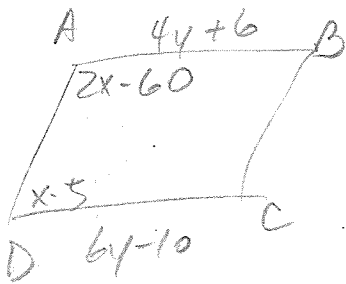 A 4y+6 B
2x-60
x-5
D 6y-10 C